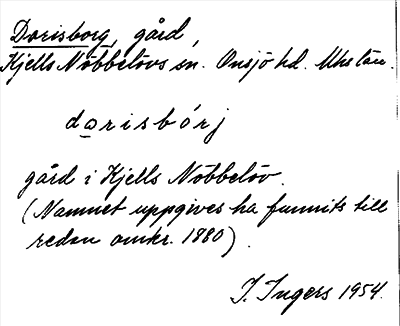 Dorisborg, gård,
Kjells Nöbbelövs sn. Onsjö hd. Mhs län.
dorisbórj
gård i Kjells Nöbbelöv.
(Namnet uppgives ha funnits till
redan omkr. 1880).
I. Ingers 1954.